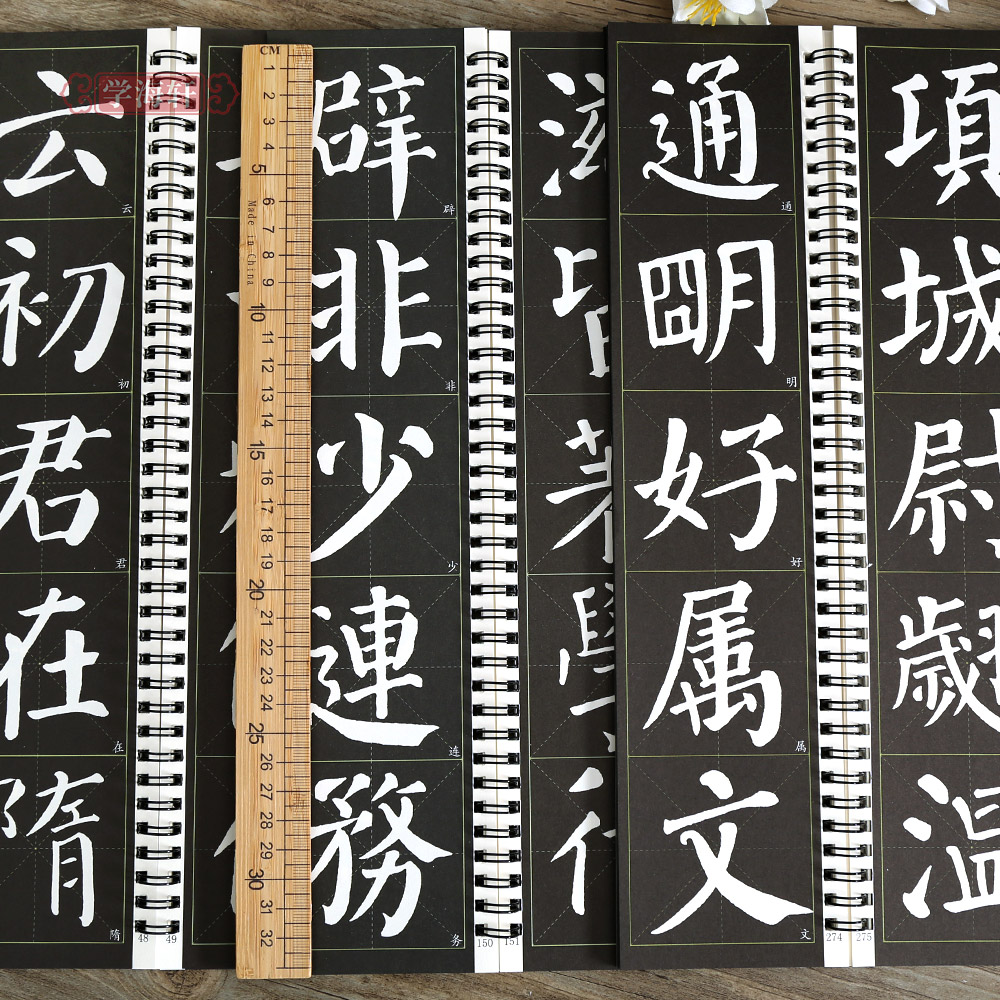 学海轩
云初君在隋
云
初
君
在
隋
48 49
CM
1 2 3 4 5 6 7 8 9 10 11 12 13 14 15 16 17 18 19 20 21 22 23 24 25 26 27 28 29 30 31 32
Made in China
辟非少連務
辟
非
少
连
务
150 151
通明好属文
通
明
好
属
文
274 275
項城尉
温